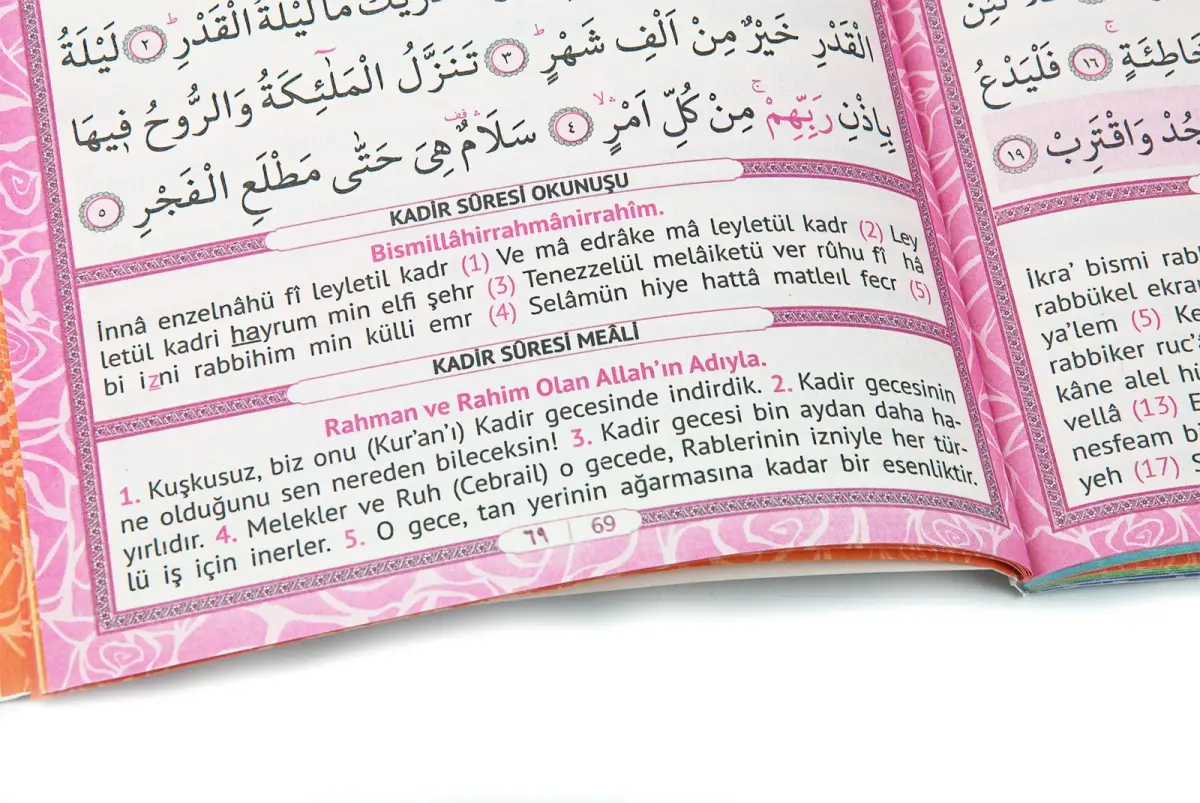 مَا لَيْلَةُ الْقَدْرِؕ ﴿٢﴾ لَيْلَةُ
الْقَدْرِ خَيْرٌ مِنْ اَلْفِ شَهْرٍؕ ﴿٣﴾ تَنَزَّلُ الْمَلٰٓئِكَةُ وَالرُّوحُ فٖيهَا
بِاِذْنِ رَبِّهِمْۚ مِنْ كُلِّ اَمْرٍۙ ﴿٤﴾ سَلَامٌ هِيَ حَتّٰى مَطْلَعِ الْفَجْرِ ﴿٥﴾
KADİR SÛRESİ OKUNUŞU
Bismillâhirrahmânirrahîm.
İnnâ enzelnâhü fî leyletil kadr (1) Ve mâ edrâke mâ leyletül kadr (2) Ley
letül kadri hayrum min elfi şehr (3) Tenezzelül melâiketü ver rûhu fî hâ
bi izni rabbihim min külli emr (4) Selâmün hiye hattâ matleıl fecr (5)
KADİR SÛRESİ MEÂLİ
Rahman ve Rahim Olan Allah'ın Adıyla.
1. Kuşkusuz, biz onu (Kur'an'ı) Kadir gecesinde indirdik. 2. Kadir gecesinin
ne olduğunu sen nereden bileceksin! 3. Kadir gecesi bin aydan daha ha-
yırlıdır. 4. Melekler ve Ruh (Cebrail) o gecede, Rablerinin izniyle her tür-
lü iş için inerler. 5. O gece, tan yerinin ağarmasına kadar bir esenliktir.
٦٩ 69
خَاطِئَةٍۚ ﴿١٦﴾ فَلْيَدْعُ
وَاقْتَرِبْ ﴿١٩﴾
İkra' bismi rab
rabbükel ekra
ya'lem (5) Ke
rabbiker ruc'
kâne alel hü
vellâ (13) E
nesfeam bi
yeh (17) S